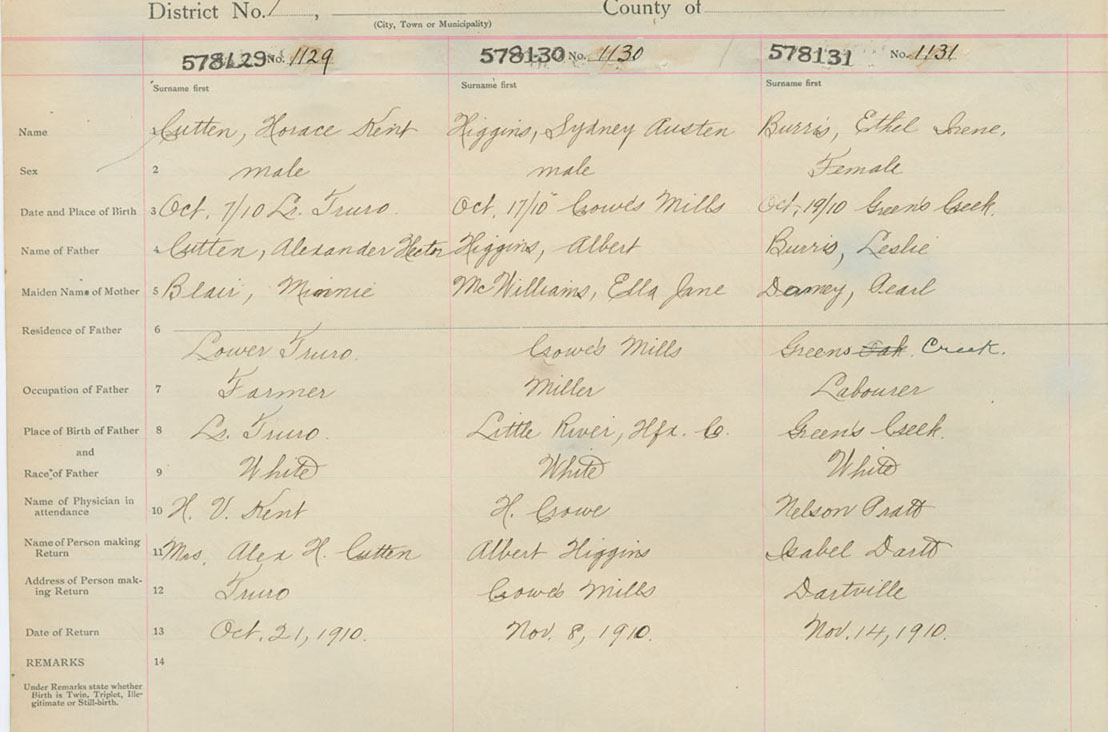 District No. 1, County of
(City, Town or Municipality)
578129 No. 1129 578130 No. 1130 578131 No. 1131
Surname first Surname first Surname first
Name 1 Cutten, Horace Kent Higgins, Sydney Austen Burris, Ethel Irene.
Sex 2 male male Female
Date and Place of Birth 3 Oct. 7/10 Lr. Truro. Oct. 17/10 Crowe's Mills Oct. 19/10 Greens Creek.
Name of Father 4 Cutten, Alexander Hector Higgins, Albert Burris, Leslie
Maiden Name of Mother 5 Blair, Minnie McWilliams, Ella Jane Pearl
Residence of Father 6
Lower Truro. Crowe's Mills Greens Oak Creek.
Occupation of Father 7 Farmer Miller Labourer
Place of Birth of Father 8 Lr. Truro. Little River, Hfx. Co. Green's Creek.
and
Race of Father 9 White White White
Name of Physician in
attendance 10 H. V. Kent H. Crowe Nelson Pratt
Name of Person making
Return 11 Mrs. Alex H. Cutten Albert Higgins Isabel Dartt
Address of Person mak-
ing Return 12 Truro Crowe's Mills Dartville
Date of Return 13 Oct. 21, 1910. Nov. 8, 1910. Nov. 14, 1910.
REMARKS 14
Under Remarks state whether
Birth is Twin, Triplet, Ille-
gitimate or Still-birth.